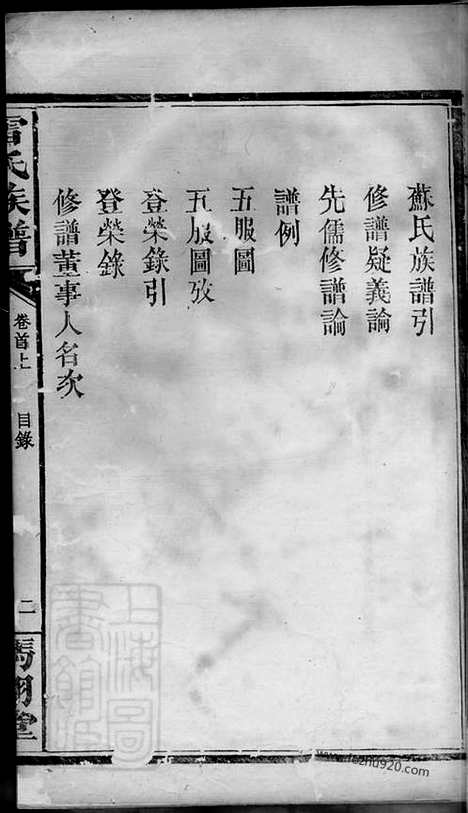 蘇氏族譜引
修譜疑義論
先儒修譜論
譜例
五服圖
五服圖攷
登榮錄引
登榮錄
修譜董事人名次
雷氏族譜
卷首上
目錄
二
馮翊堂
上海圖書館藏
www.jiazhu920.com